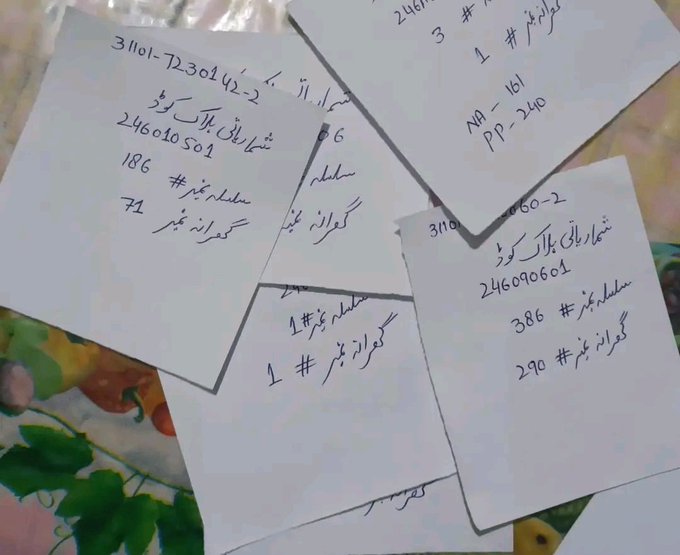 31101-7230142-2
شماریاتی بلاک کوڈ
246010501
سلسلہ نمبر # 186
گھرانہ نمبر 71
شماریاتی
06
سلسلہ
گھرانہ نمبر
سلسلہ نمبر # 1
گھرانہ نمبر # 1
گھرانہ نمبر
# 3
گھرانہ نمبر # 1
NA-161
PP-240
060-2
شماریاتی بلاک کوڈ
246090601
سلسلہ نمبر # 386
گھرانہ نمبر # 290